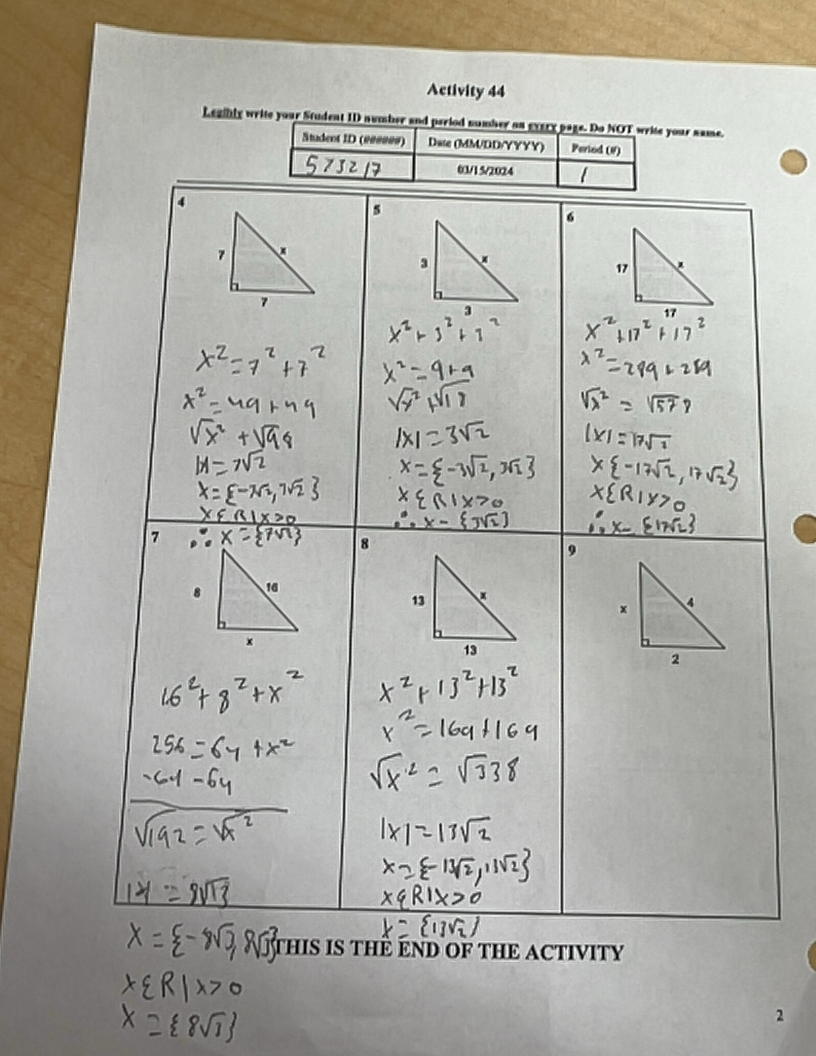 Activity 44
Legibly write your Student ID number and period number on every page. Do NOT write your name.
Student ID (######) Date (MM/DD/YYYY) Period (#)
573217 03/15/2024 1
4
7
x
7
x² = 7² + 7²
x² = 49 + 49
√x² + √98
|x| = 7√2
x = {-7√2, 7√2}
x ε R | x > 0
∴ x = {7√2}
5
3
x
3
x² + 3² + 3²
x² = 9 + 9
√x² + √18
|x| = 3√2
x = {-3√2, 3√2}
x ε R | x > 0
∴ x = {3√2}
6
17
x
17
x² + 17² + 17²
x² = 289 + 289
√x² = √578
|x| = 17√2
x {-17√2, 17√2}
x ε R | x > 0
∴ x = {17√2}
7
8
16
x
16² + 8² + x²
256 = 64 + x²
-64 -64
√192 = √x²
|x| = 8√3
x = {-8√3, 8√3}
x ε R | x > 0
x = {8√3}
8
13
x
13
x² + 13² + 13²
x² = 169 + 169
√x² = √338
|x| = 13√2
x = {-13√2, 13√2}
x ε R | x > 0
x = {13√2}
9
x
4
2
THIS IS THE END OF THE ACTIVITY
2